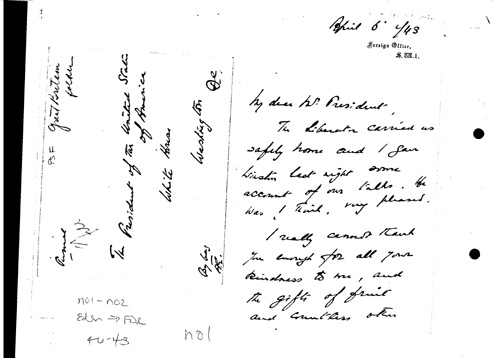 April 6 /43
Foreign Office,
S.W.1.
My dear Mr. President,
The Liberator carried us
safely home and I gave
Winston last night some
account of our talks. He
was, I think, very pleased.
I really cannot thank
you enough for all your
kindness to me, and
the gifts of fruit
and countless other
The President of the United States
of America
White House
Washington
D.C.
By bag
PSF Great Britain
folder
n01-n02
Eden → FDR
4-6-43
n01